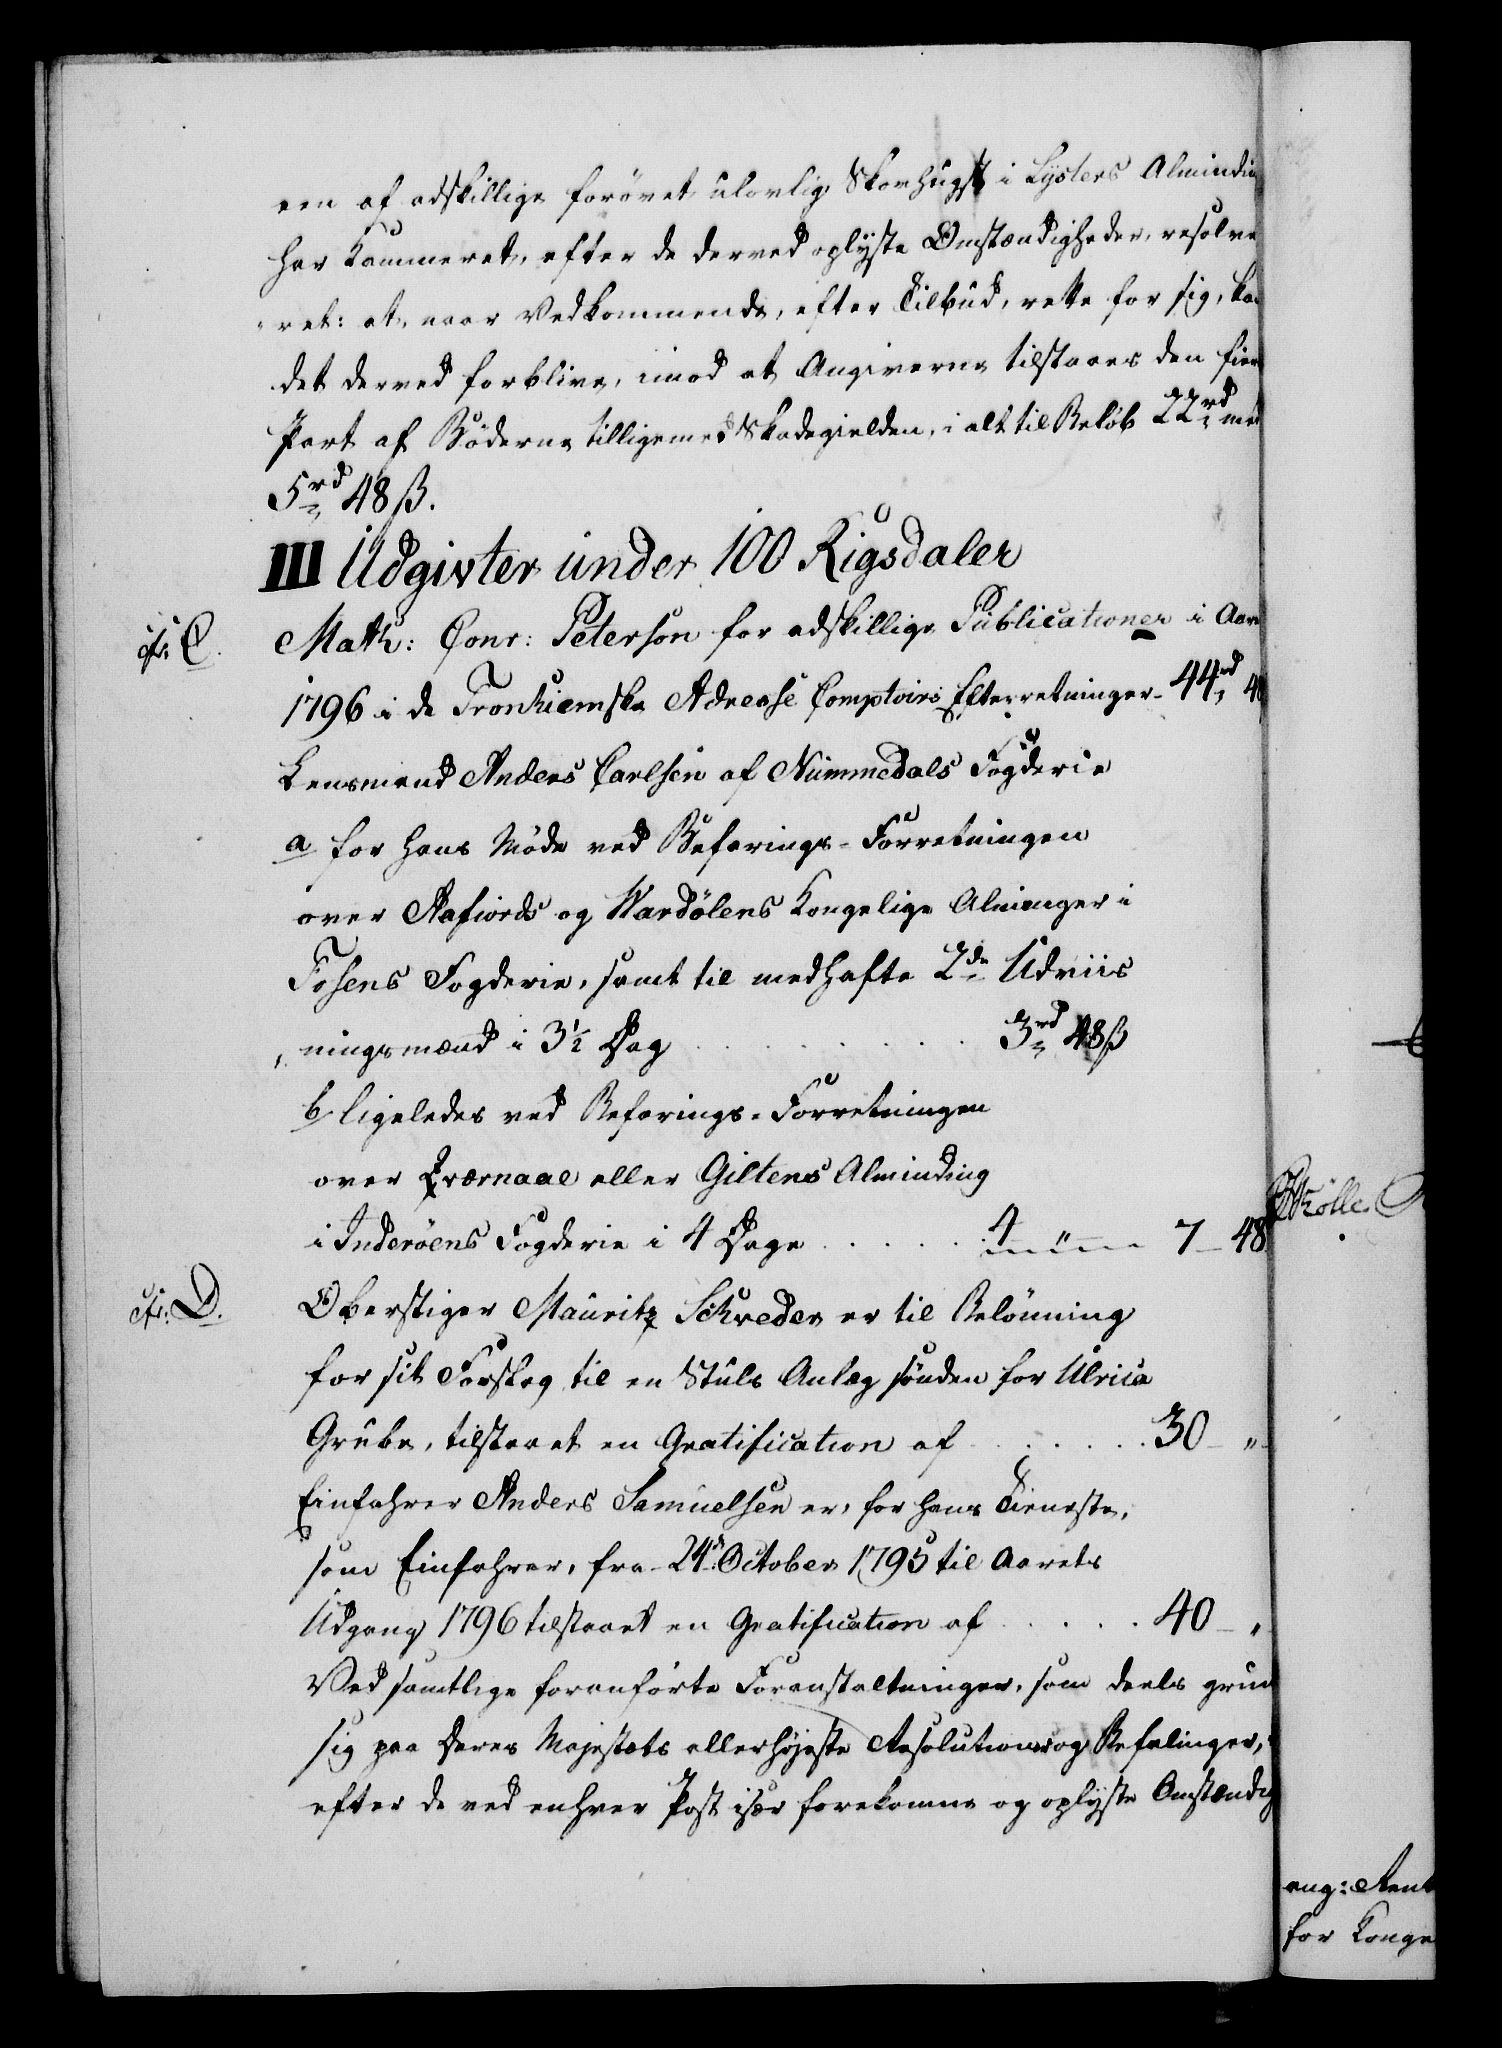 een af adskillige forövet ulovlig Skovhugst i Lysters Almindin
har Kammeret, efter de derved oplyste Omstændigheder, resolve
ret: at, naar Vedkommende, efter Tilbud, rette for sig, kan
det derved forblive, imod at Angiverne tilstaaes den fier
Part af Böderne tilligemed Skadegielden, i alt til Belöb 22rd med
5rd 48 ß.
III Udgivter under 100 Rigsdaler
cfr: C. Math: Conr: Peterson for adskillige Publicationer i Aare
1796 i de Tronhiemske Adresse Comptoirs Efterretninger - 44rd 48
Lensmand Anders Carlsen af Nummedals Fogderie
a for hans Möde ved Befarings-Forretningen
over Aafiords og Wardölens Kongelige Alminger i
Fosens Fogderie, samt til medhafte 2de Udviis
ningsmænd i 3 1/2 Dag . . . . . . . . . 3rd 48ß
b ligeledes ved Befarings-Forretningen
over Qværnaae eller Giltens Alminding
i Inderöens Fogderie i 4 Dage . . . . . . 4 " 7 - 48
cfr: D. Oberstiger Mauritz Schreder er til Belönning
for sit Forslag til en Stuls Anlæg sönden for Ulrica
Grube, tilstaaet en Gratification af . . . . . . 30 - "
Einfahrer Anders Samuelsen er, for hans Tieneste,
som Einfahrer, fra 24de October 1795 til Aarets
Udgang 1796 tilstaaet en Gratification af . . . . . 40 - "
Ved samtlige foranförte Foranstaltninger, som deels grun
sig paa Deres Majestæts allerhöjeste Resolutioner og Befalinger,
efter de ved enhver Post især forekomne og oplyste Omstændig
Mölle
ang: Rent
for Konge